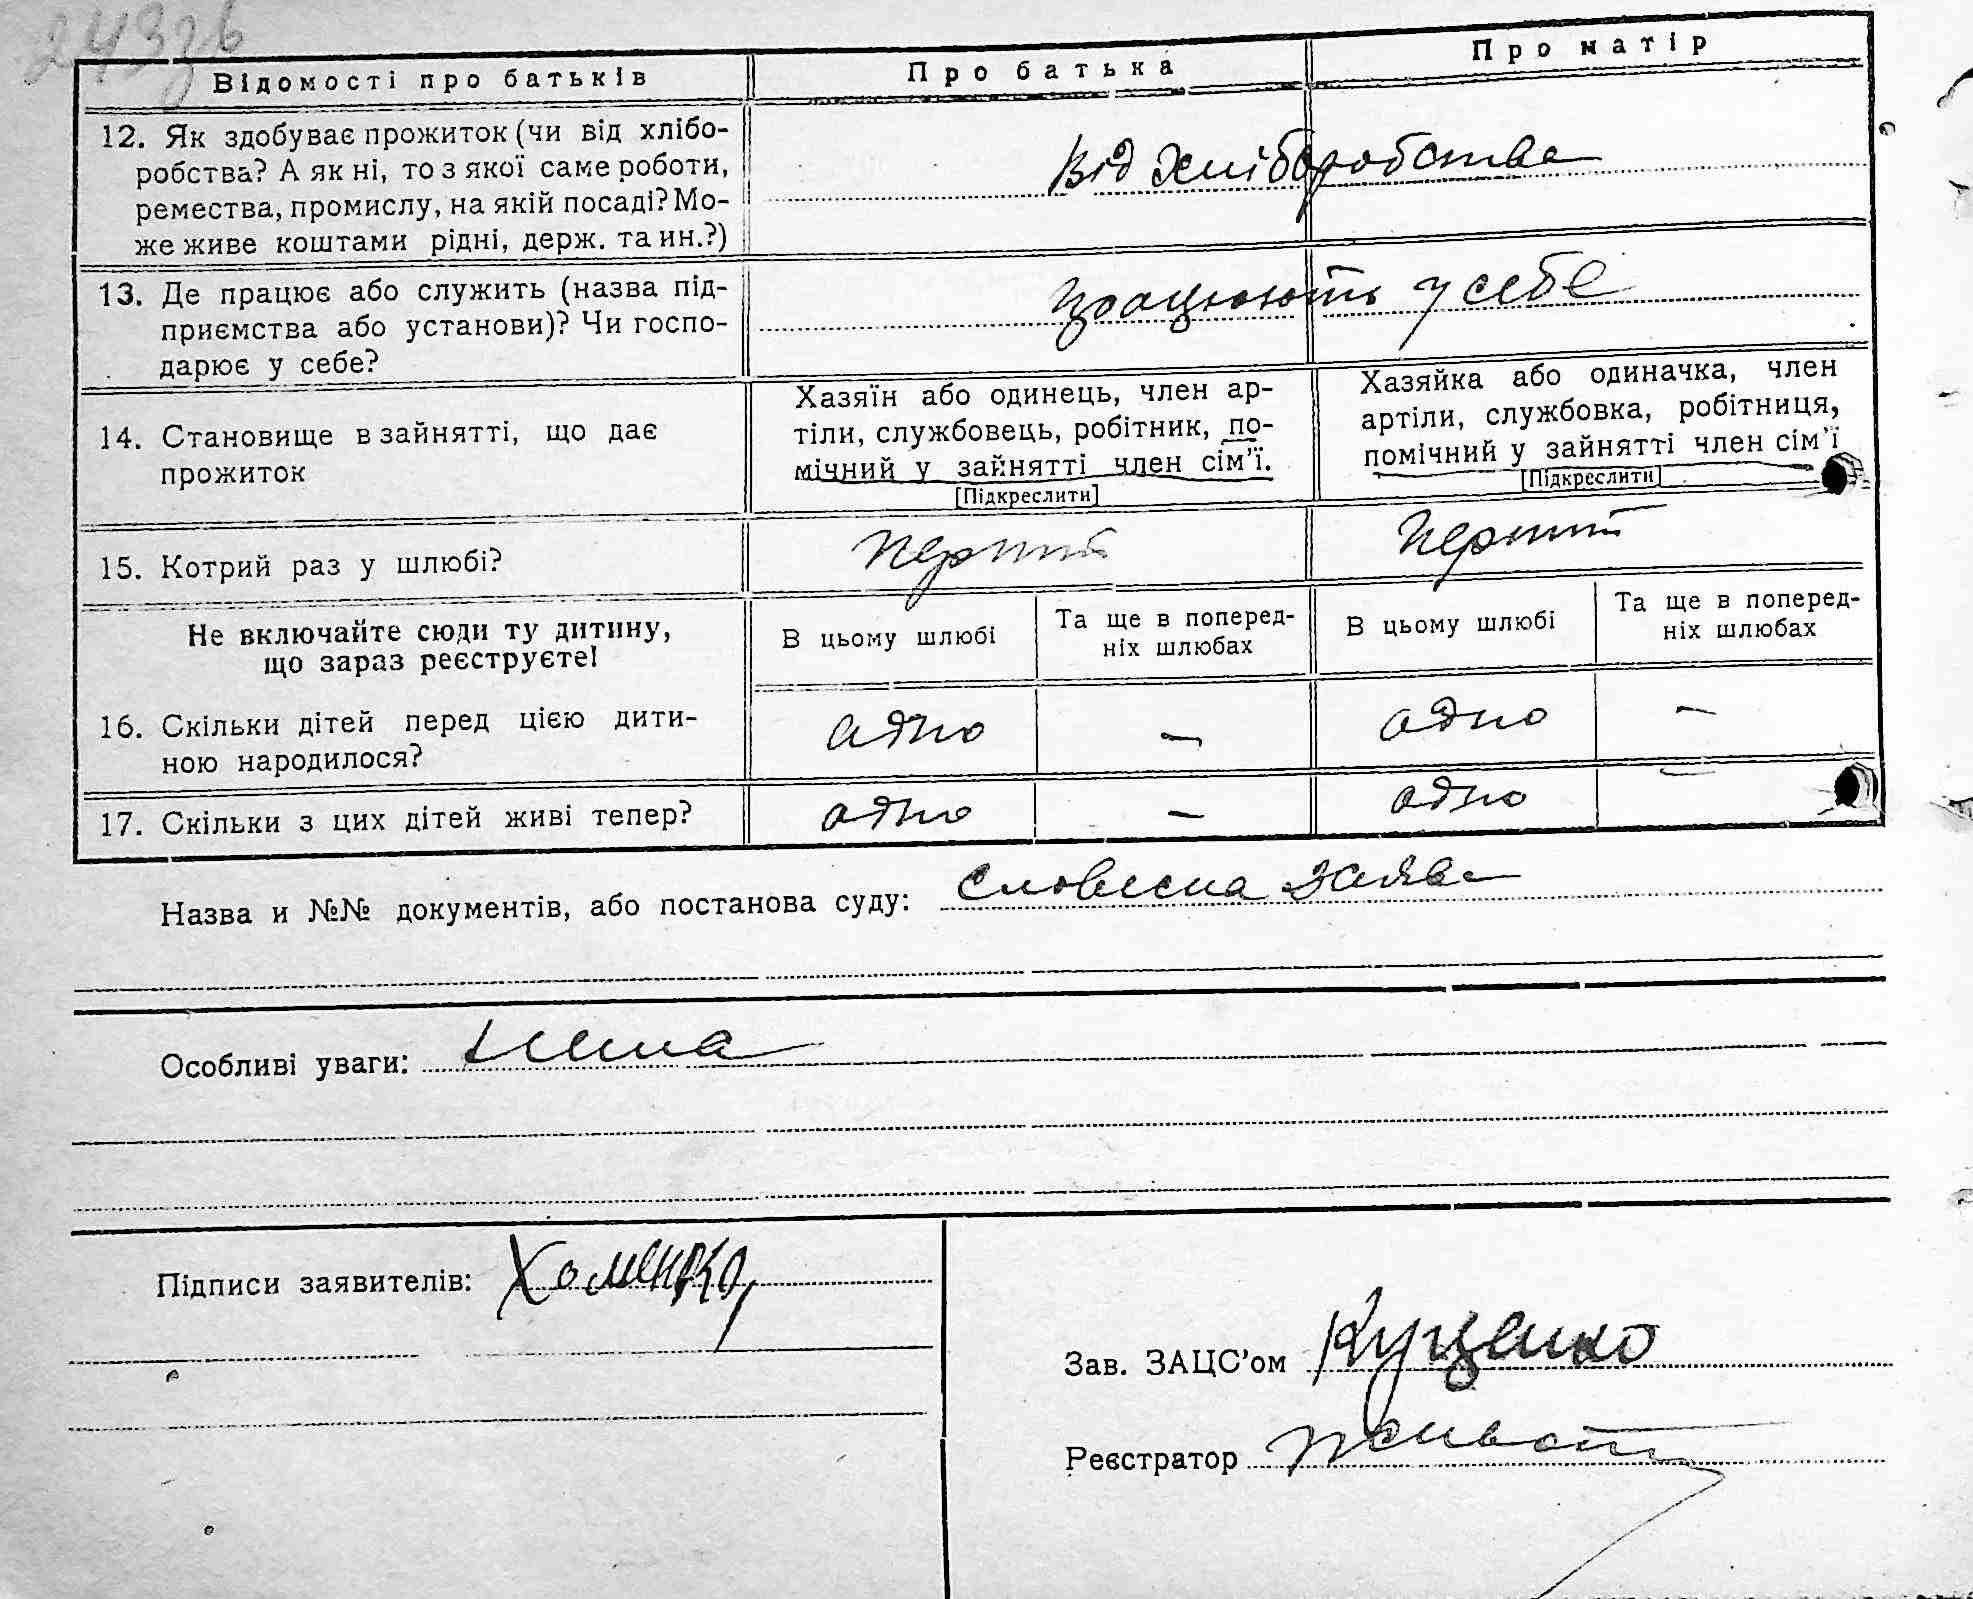 243зв
Відомості про батьків
Про батька
Про матір
12. Як здобуває прожиток (чи від хлібо-
робства? А як ні, то з якої саме роботи,
ремества, промислу, на якій посаді? Мо-
же живе коштами рідні, держ. та ин.?)
Від хліборобства
13. Де працює або служить (назва під-
приємства або установи)? Чи госпо-
дарює у себе?
працюють у себе
14. Становище в зайнятті, що дає
прожиток
Хазяїн або одинець, член ар-
тіли, службовець, робітник, по-
мічний у зайнятті член сім'ї.
[Підкреслити]
Хазяйка або одиначка, член
артіли, службовка, робітниця,
помічний у зайнятті член сім'ї
[Підкреслити]
15. Котрий раз у шлюбі?
перший
перший
Не включайте сюди ту дитину,
що зараз реєструєте!
В цьому шлюбі
Та ще в поперед-
ніх шлюбах
В цьому шлюбі
Та ще в поперед-
ніх шлюбах
16. Скільки дітей перед цією дити-
ною народилося?
одно
–
одно
–
17. Скільки з цих дітей живі тепер?
одно
–
одно
–
Назва и №№ документів, або постанова суду: словесна заява
Особливі уваги: нема
Підписи заявителів: Хоменко
Зав. ЗАЦС'ом Куценко
Реєстратор